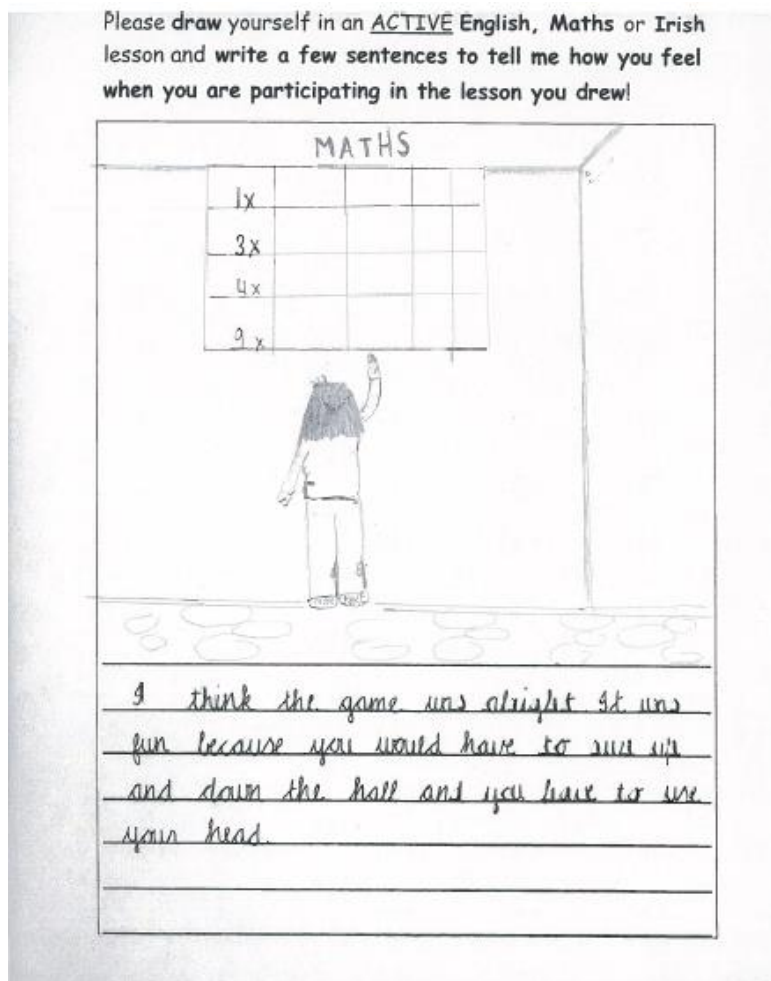 Please draw yourself in an ACTIVE English, Maths or Irish
lesson and write a few sentences to tell me how you feel
when you are participating in the lesson you drew!
MATHS
1x
3x
4x
9x
I think the game was alright. It was
fun because you would have to run up
and down the hall and you have to use
your head.